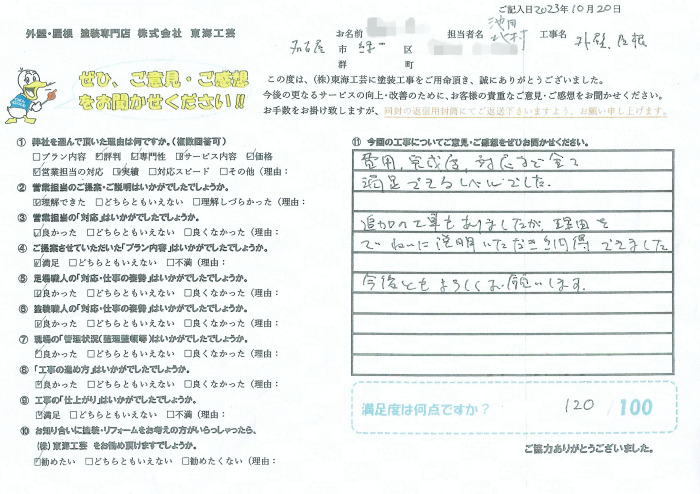 ご記入日2023年10月20日
外壁・屋根 塗装専門店 株式会社 東海工芸
お名前
担当者名 池田 北村
工事名 外壁、屋根
名古屋 市 緑 区
郡 町
ぜひ、ご意見・ご感想
をお聞かせください!!
この度は、(株)東海工芸に塗装工事をご用命頂き、誠にありがとうございました。
今後の更なるサービスの向上・改善のために、お客様の貴重なご意見・ご感想をお聞かせください。
お手数をお掛け致しますが、同封の返信用封筒にてご返送下さいますよう、お願い申し上げます。
① 弊社を選んで頂いた理由は何ですか。(複数回答可)
□プラン内容 ☑評判 ☑専門性 ☑サービス内容 ☑価格
☑営業担当の対応 ☑実績 □対応スピード □その他(理由:
② 営業担当のご提案・ご説明はいかがでしたでしょうか。
☑理解できた □どちらともいえない □理解しづらかった(理由:
③ 営業担当の「対応」はいかがでしたでしょうか。
☑良かった □どちらともいえない □良くなかった(理由:
④ ご提案させていただいた「プラン内容」はいかがでしたでしょうか。
☑満足 □どちらともいえない □不満(理由:
⑤ 足場職人の「対応・仕事の姿勢」はいかがでしたでしょうか。
☑良かった □どちらともいえない □良くなかった(理由:
⑥ 塗装職人の「対応・仕事の姿勢」はいかがでしたでしょうか。
☑良かった □どちらともいえない □良くなかった(理由:
⑦ 現場の「管理状況(整理整頓等)はいかがでしたでしょうか。
☑良かった □どちらともいえない □良くなかった(理由:
⑧ 「工事の進め方」はいかがでしたでしょうか。
☑良かった □どちらともいえない □良くなかった(理由:
⑨ 工事の「仕上がり」はいかがでしたでしょうか。
☑満足 □どちらともいえない □不満(理由:
⑩ お知り合いに塗装・リフォームをお考えの方がいらっしゃったら、
(株)東海工芸 をお勧め頂けますでしょうか。
☑勧めたい □どちらともいえない □勧めたくない(理由:
⑪ 今回の工事についてご意見・ご感想をぜひお聞かせください。
費用、完成度、対応まで全て
満足できるレベルでした.
追加の工事もありましたが、理由を
ていねいに説明いただき納得できました
今後ともよろしくお願いします.
満足度は何点ですか? 120 /100
ご協力ありがとうございました。